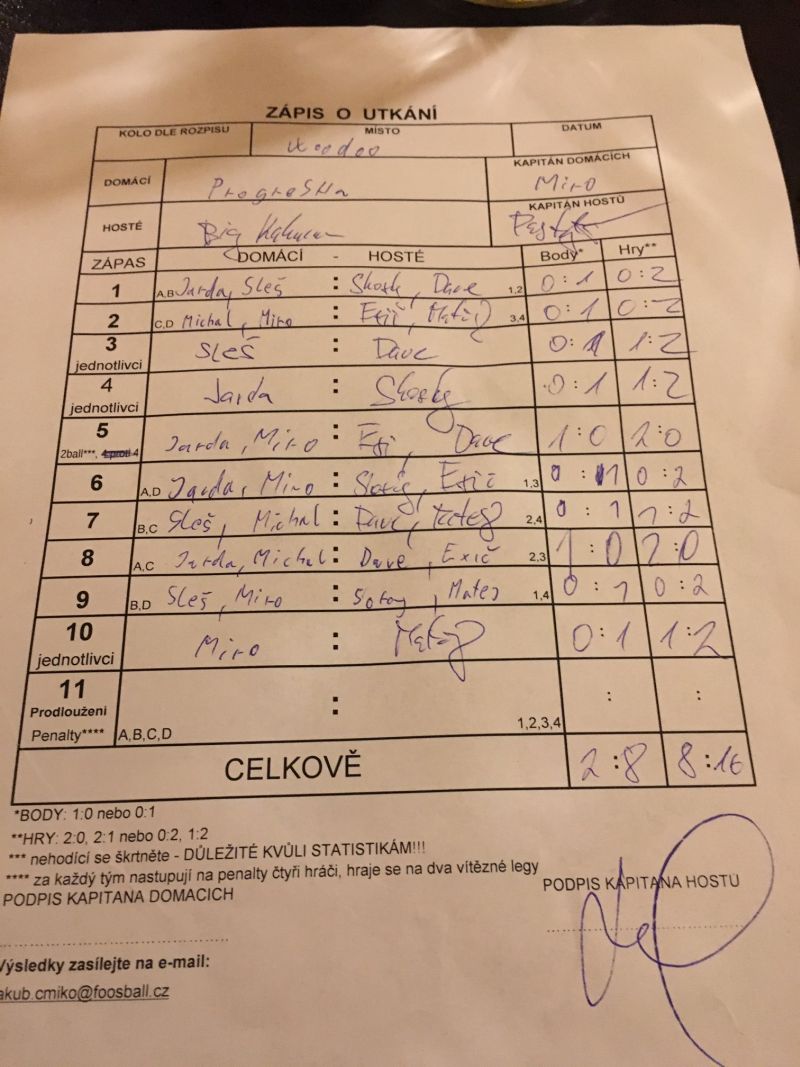 ZÁPIS O UTKÁNÍ
KOLO DLE ROZPISU MÍSTO DATUM
Voodoo
DOMÁCÍ Progresha KAPITÁN DOMÁCÍCH
Miro
HOSTÉ Big KAPITÁN HOSTŮ
ZÁPAS DOMÁCÍ - HOSTÉ Body* Hry**
1 A,B Jarda, Sleš : Skosk, Dave 1,2 0:1 0:2
2 C,D Michal, Miro : Exič, Matěj 3,4 0:1 0:2
3 jednotlivci Sleš : Dave 0:1 1:2
4 jednotlivci Jarda : 0:1 1:2
5 2ball***, 4 proti 4 Jarda, Miro : Exi, Dave 1:0 2:0
6 A,D Jarda, Miro : , Exič 1,3 0:1 0:2
7 B,C Sleš, Michal : Dave, Matěj 2,4 0:1 1:2
8 A,C Jarda, Michal : Dave, Exič 2,3 1:0 2:0
9 B,D Sleš, Miro : , Matej 1,4 0:1 0:2
10 jednotlivci Miro : Matěj 0:1 1:2
11 Prodloužení Penalty**** A,B,C,D : 1,2,3,4 : :
CELKOVĚ 2:8 8:16
*BODY: 1:0 nebo 0:1
**HRY: 2:0, 2:1 nebo 0:2, 1:2
*** nehodící se škrtněte - DŮLEŽITÉ KVŮLI STATISTIKÁM!!!
**** za každý tým nastupují na penalty čtyři hráči, hraje se na dva vítězné legy
PODPIS KAPITANA DOMACICH PODPIS KAPITANA HOSTU
Výsledky zasílejte na e-mail:
akub.cmiko@foosball.cz